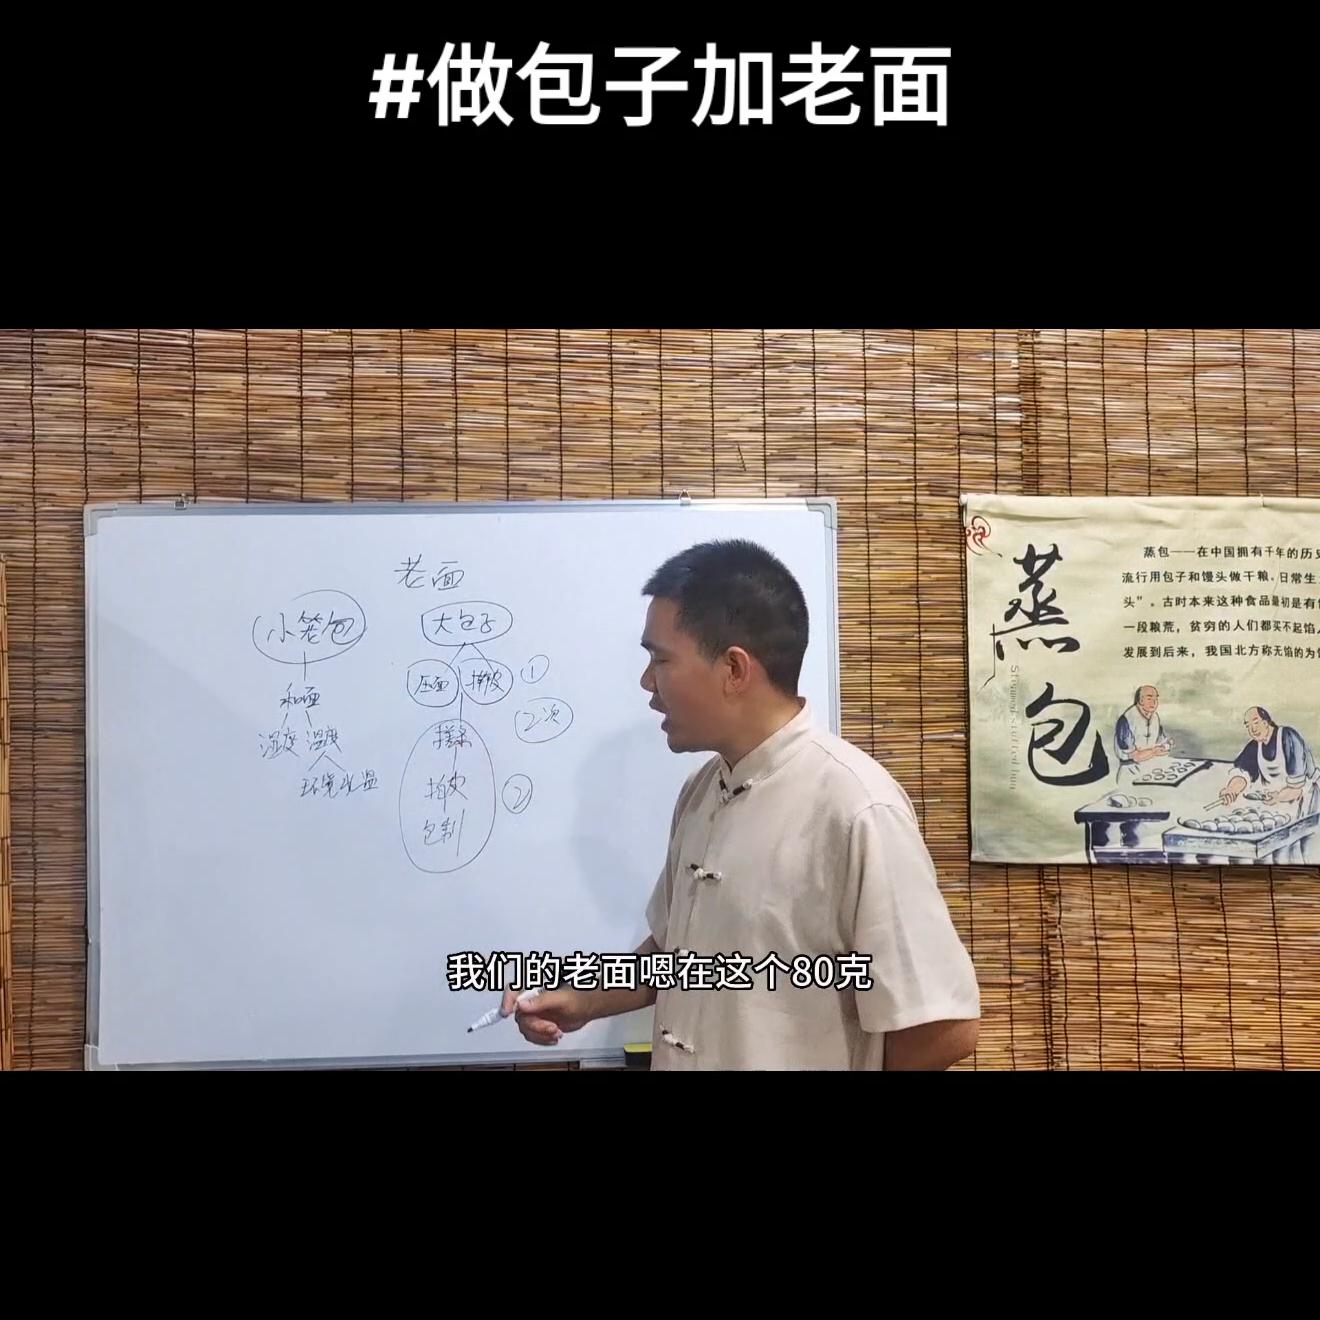 #做包子加老面
老面
小笼包
大包子
和面
湿度 温度
环境 水温
压面 擀皮 ①
2次
搓条
擀皮 ②
包制
蒸包
Steamed stuffed bun
蒸包——在中国拥有千年的历史
流行用包子和馒头做干粮。日常生
头”。古时本来这种食品最初是有
一段粮荒,贫穷的人们都买不起馅
发展到后来,我国北方称无馅的为
我们的老面嗯在这个80克